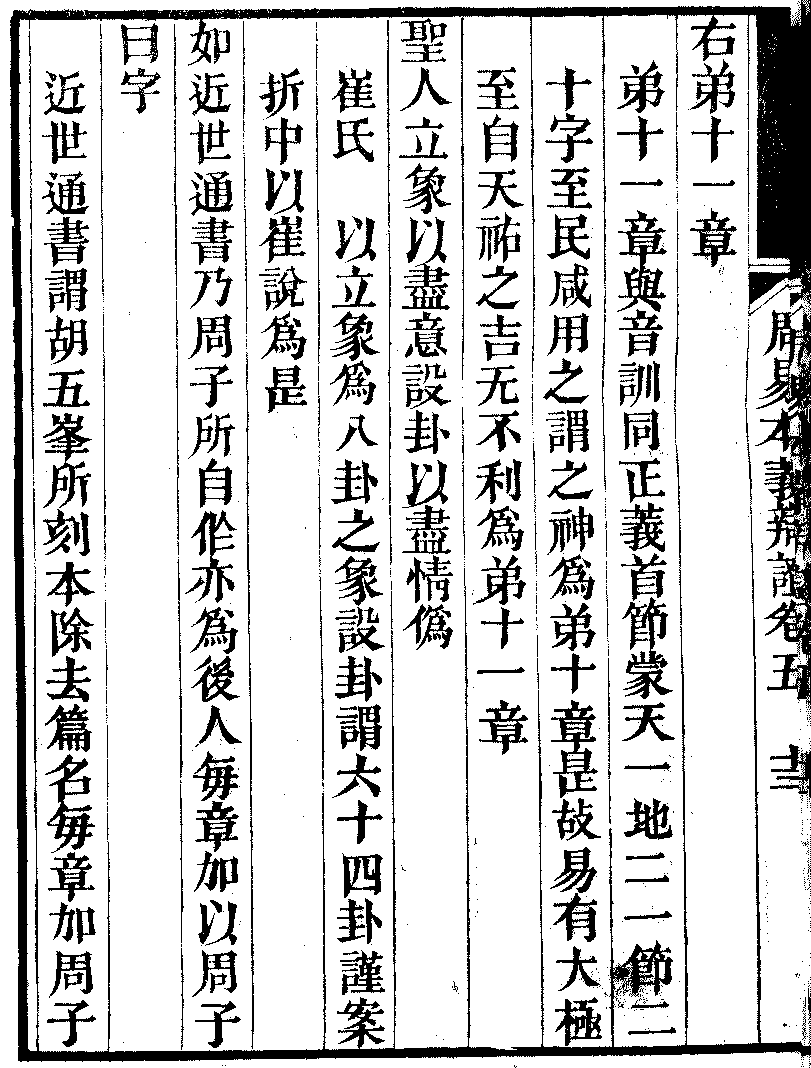 周易本義辯證卷五 十三
右弟十一章
弟十一章與音訓同正義首節蒙天一地二一節二
十字至民咸用之謂之神爲弟十章是故易有大極
至自天祐之吉无不利爲弟十一章
聖人立象以盡意設卦以盡情僞
崔氏 以立象爲八卦之象設卦謂六十四卦謹案
折中以崔說爲是
如近世通書乃周子所自作亦爲後人每章加以周子
曰字
近世通書謂胡五峯所刻本除去篇名每章加周子